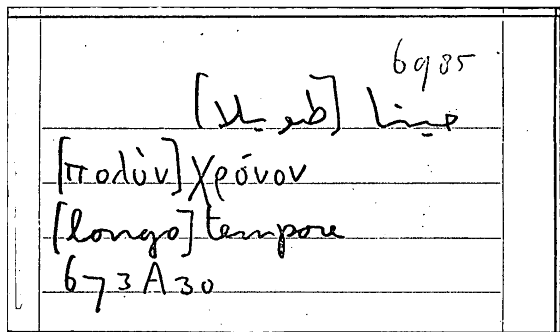 6985
حينا [طويلا]
[πολὺν] χρόνον
[longo] tempore
673A30